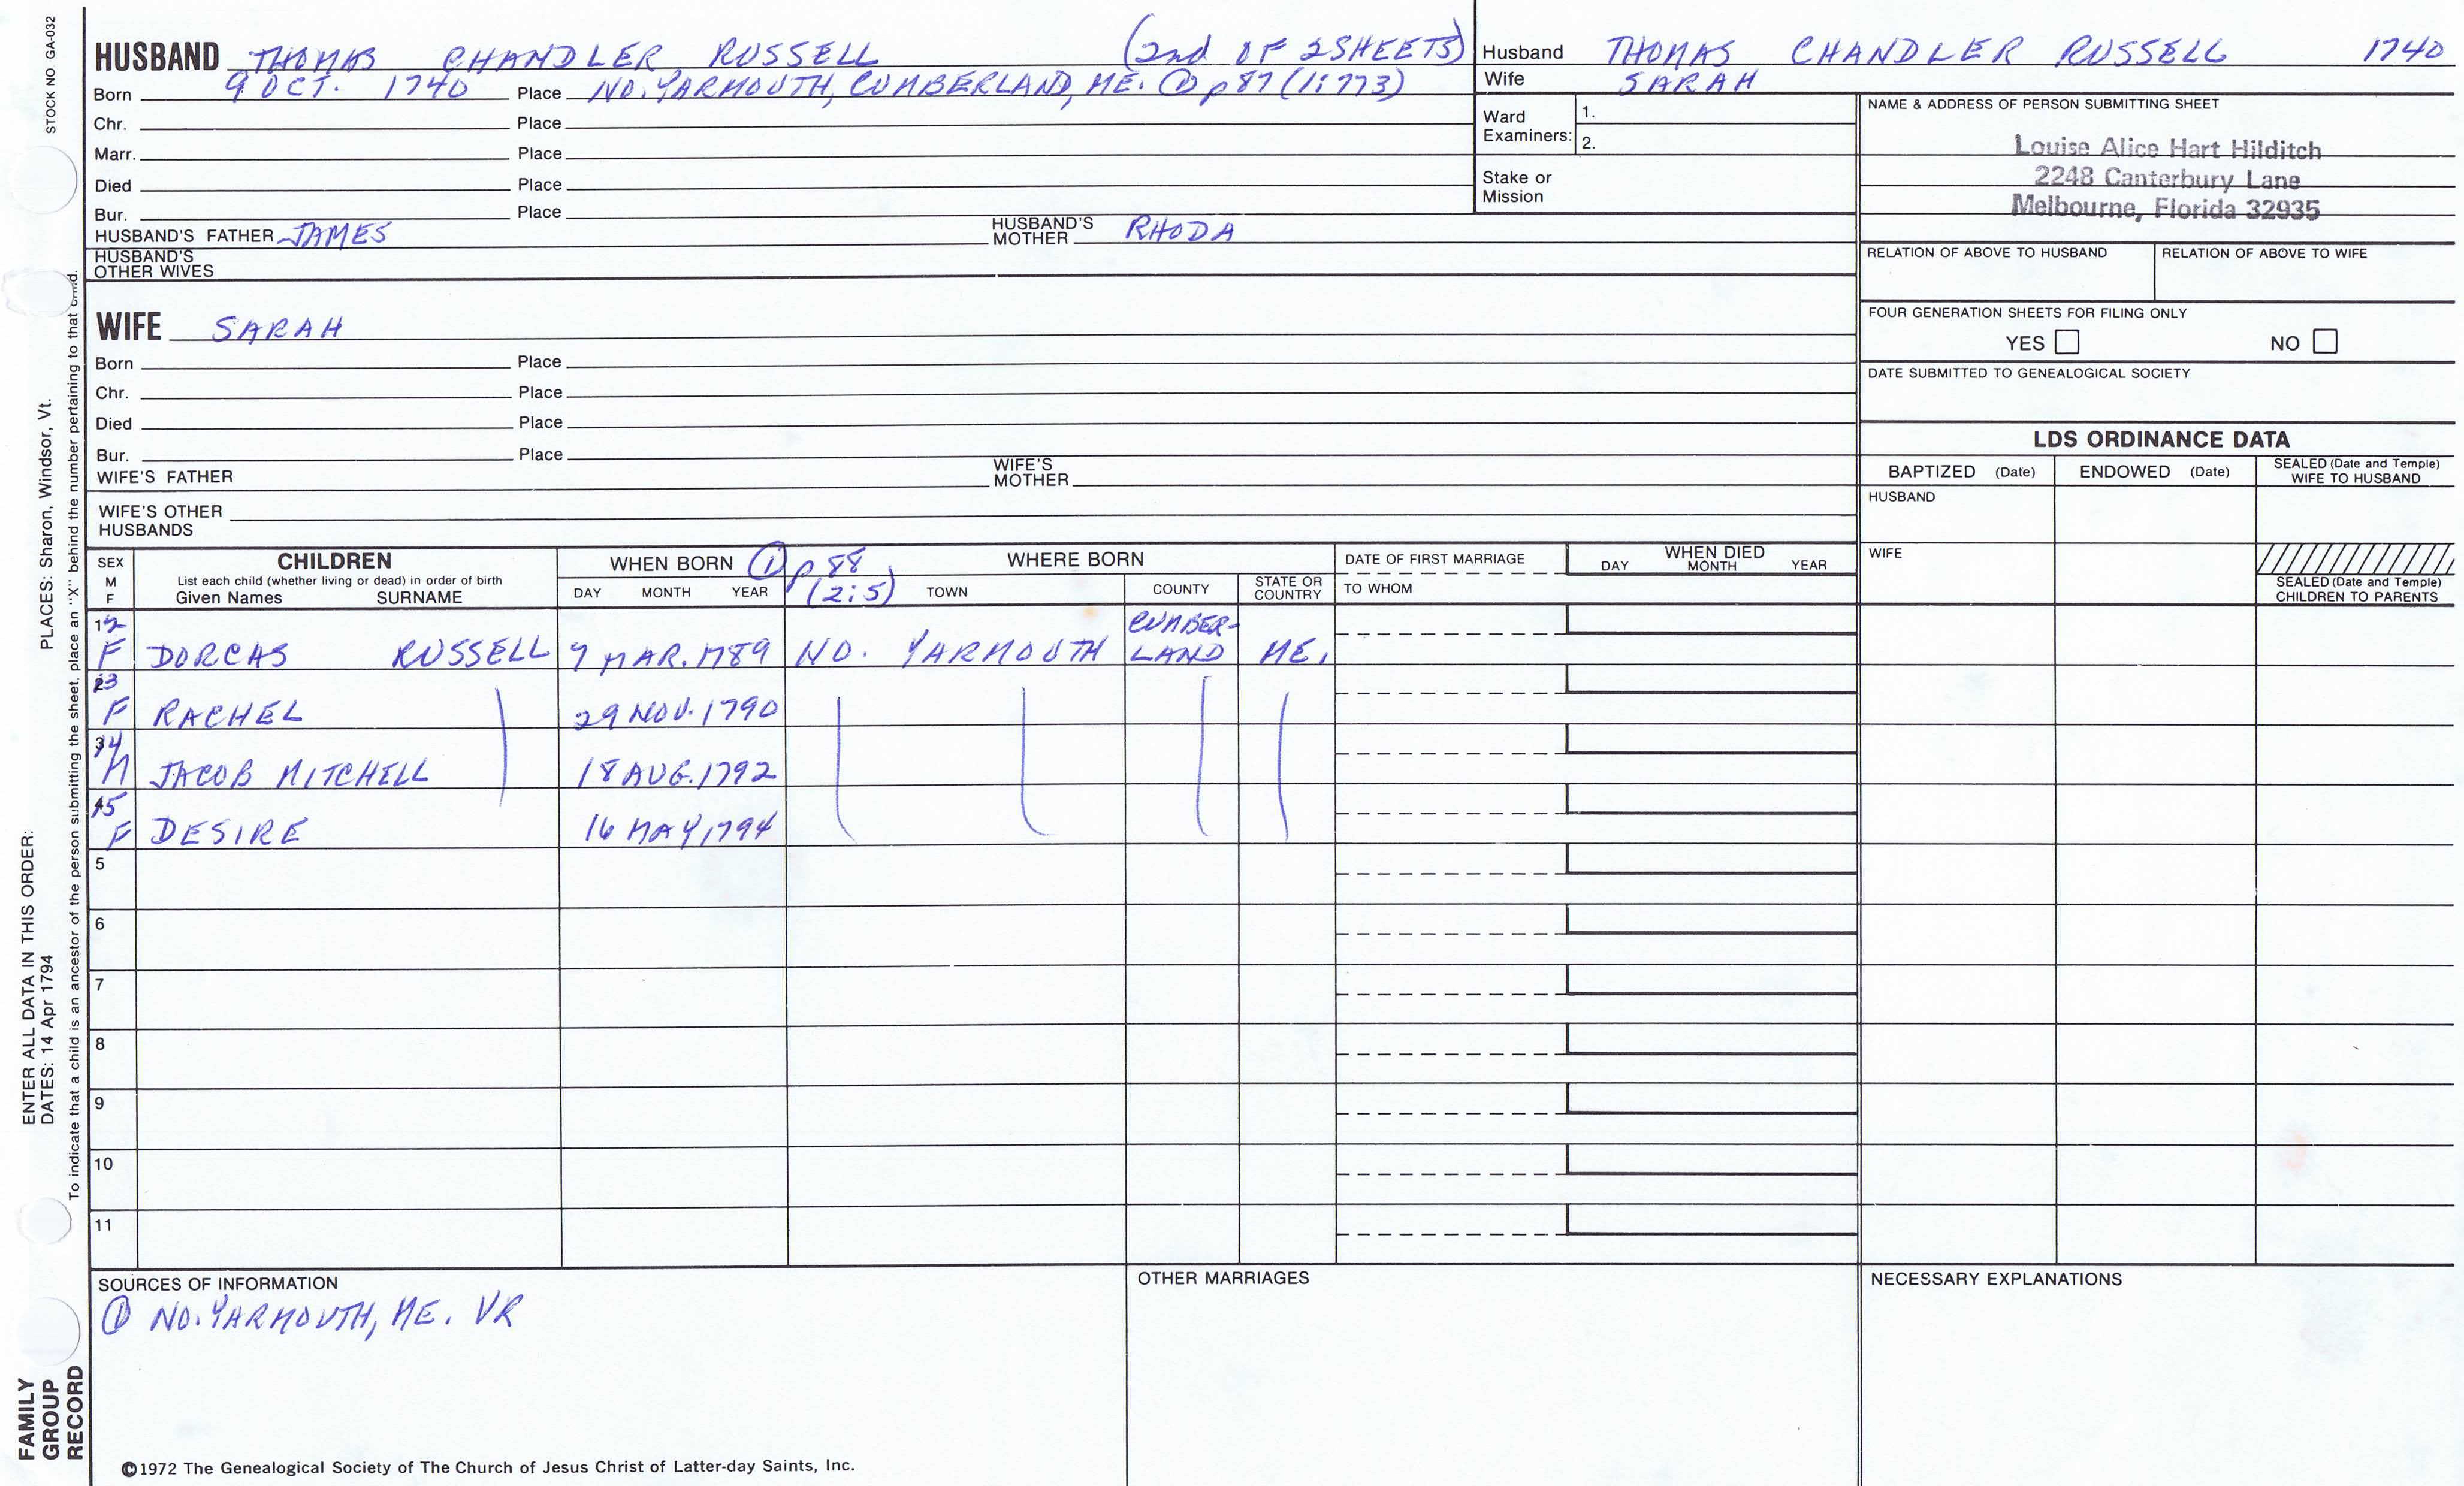 STOCK NO GA-032
HUSBAND THOMAS CHANDLER RUSSELL (2nd OF 2 SHEETS)
Born 9 OCT. 1740 Place NO. YARMOUTH, CUMBERLAND, ME. ① p 87 (1:773)
Chr. Place
Marr. Place
Died Place
Bur. Place
HUSBAND'S FATHER JAMES HUSBAND'S MOTHER RHODA
HUSBAND'S OTHER WIVES
WIFE SARAH
Born Place
Chr. Place
Died Place
Bur. Place
WIFE'S FATHER WIFE'S MOTHER
WIFE'S OTHER HUSBANDS
Husband THOMAS CHANDLER RUSSELL 1740
Wife SARAH
Ward Examiners: 1.
2.
Stake or Mission
NAME & ADDRESS OF PERSON SUBMITTING SHEET
Louise Alice Hart Hilditch
2248 Canterbury Lane
Melbourne, Florida 32935
RELATION OF ABOVE TO HUSBAND RELATION OF ABOVE TO WIFE
FOUR GENERATION SHEETS FOR FILING ONLY
YES NO
DATE SUBMITTED TO GENEALOGICAL SOCIETY
LDS ORDINANCE DATA
BAPTIZED (Date) ENDOWED (Date) SEALED (Date and Temple) WIFE TO HUSBAND
HUSBAND
WIFE
SEALED (Date and Temple) CHILDREN TO PARENTS
SEX M F
CHILDREN
List each child (whether living or dead) in order of birth
Given Names SURNAME
WHEN BORN ① p 88 (2:5)
DAY MONTH YEAR
WHERE BORN
TOWN COUNTY STATE OR COUNTRY
DATE OF FIRST MARRIAGE
TO WHOM
WHEN DIED
DAY MONTH YEAR
12 F DORCAS RUSSELL 7 MAR. 1789 NO. YARMOUTH CUMBER-LAND ME.
13 F RACHEL 29 NOV. 1790
14 M JACOB MITCHELL 18 AUG. 1792
15 F DESIRE 16 MAY, 1794
5
6
7
8
9
10
11
SOURCES OF INFORMATION
① NO. YARMOUTH, ME. VR
OTHER MARRIAGES
NECESSARY EXPLANATIONS
©1972 The Genealogical Society of The Church of Jesus Christ of Latter-day Saints, Inc.
ENTER ALL DATA IN THIS ORDER:
DATES: 14 Apr 1794 PLACES: Sharon, Windsor, Vt.
To indicate that a child is an ancestor of the person submitting the sheet, place an "X" behind the number pertaining to that child.
FAMILY
GROUP
RECORD